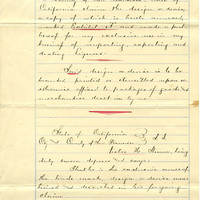 California claims the design or device,
a copy of which is hereto annexed,
marked "Exhibit A" and made a part
hereof for my exclusive use in my
business of importing, exporting and
dealing
Said design or device is to be
branded, printed or stenciled upon or
otherwise affixed to packages of goods or
merchandise dealt in by me.
State of California } S S
City and County of San Francisco
being
duly sworn deposes and says:
That he is the exclusive owner of
the trade mark, design or device mentioned
and described in his foregoing
claim